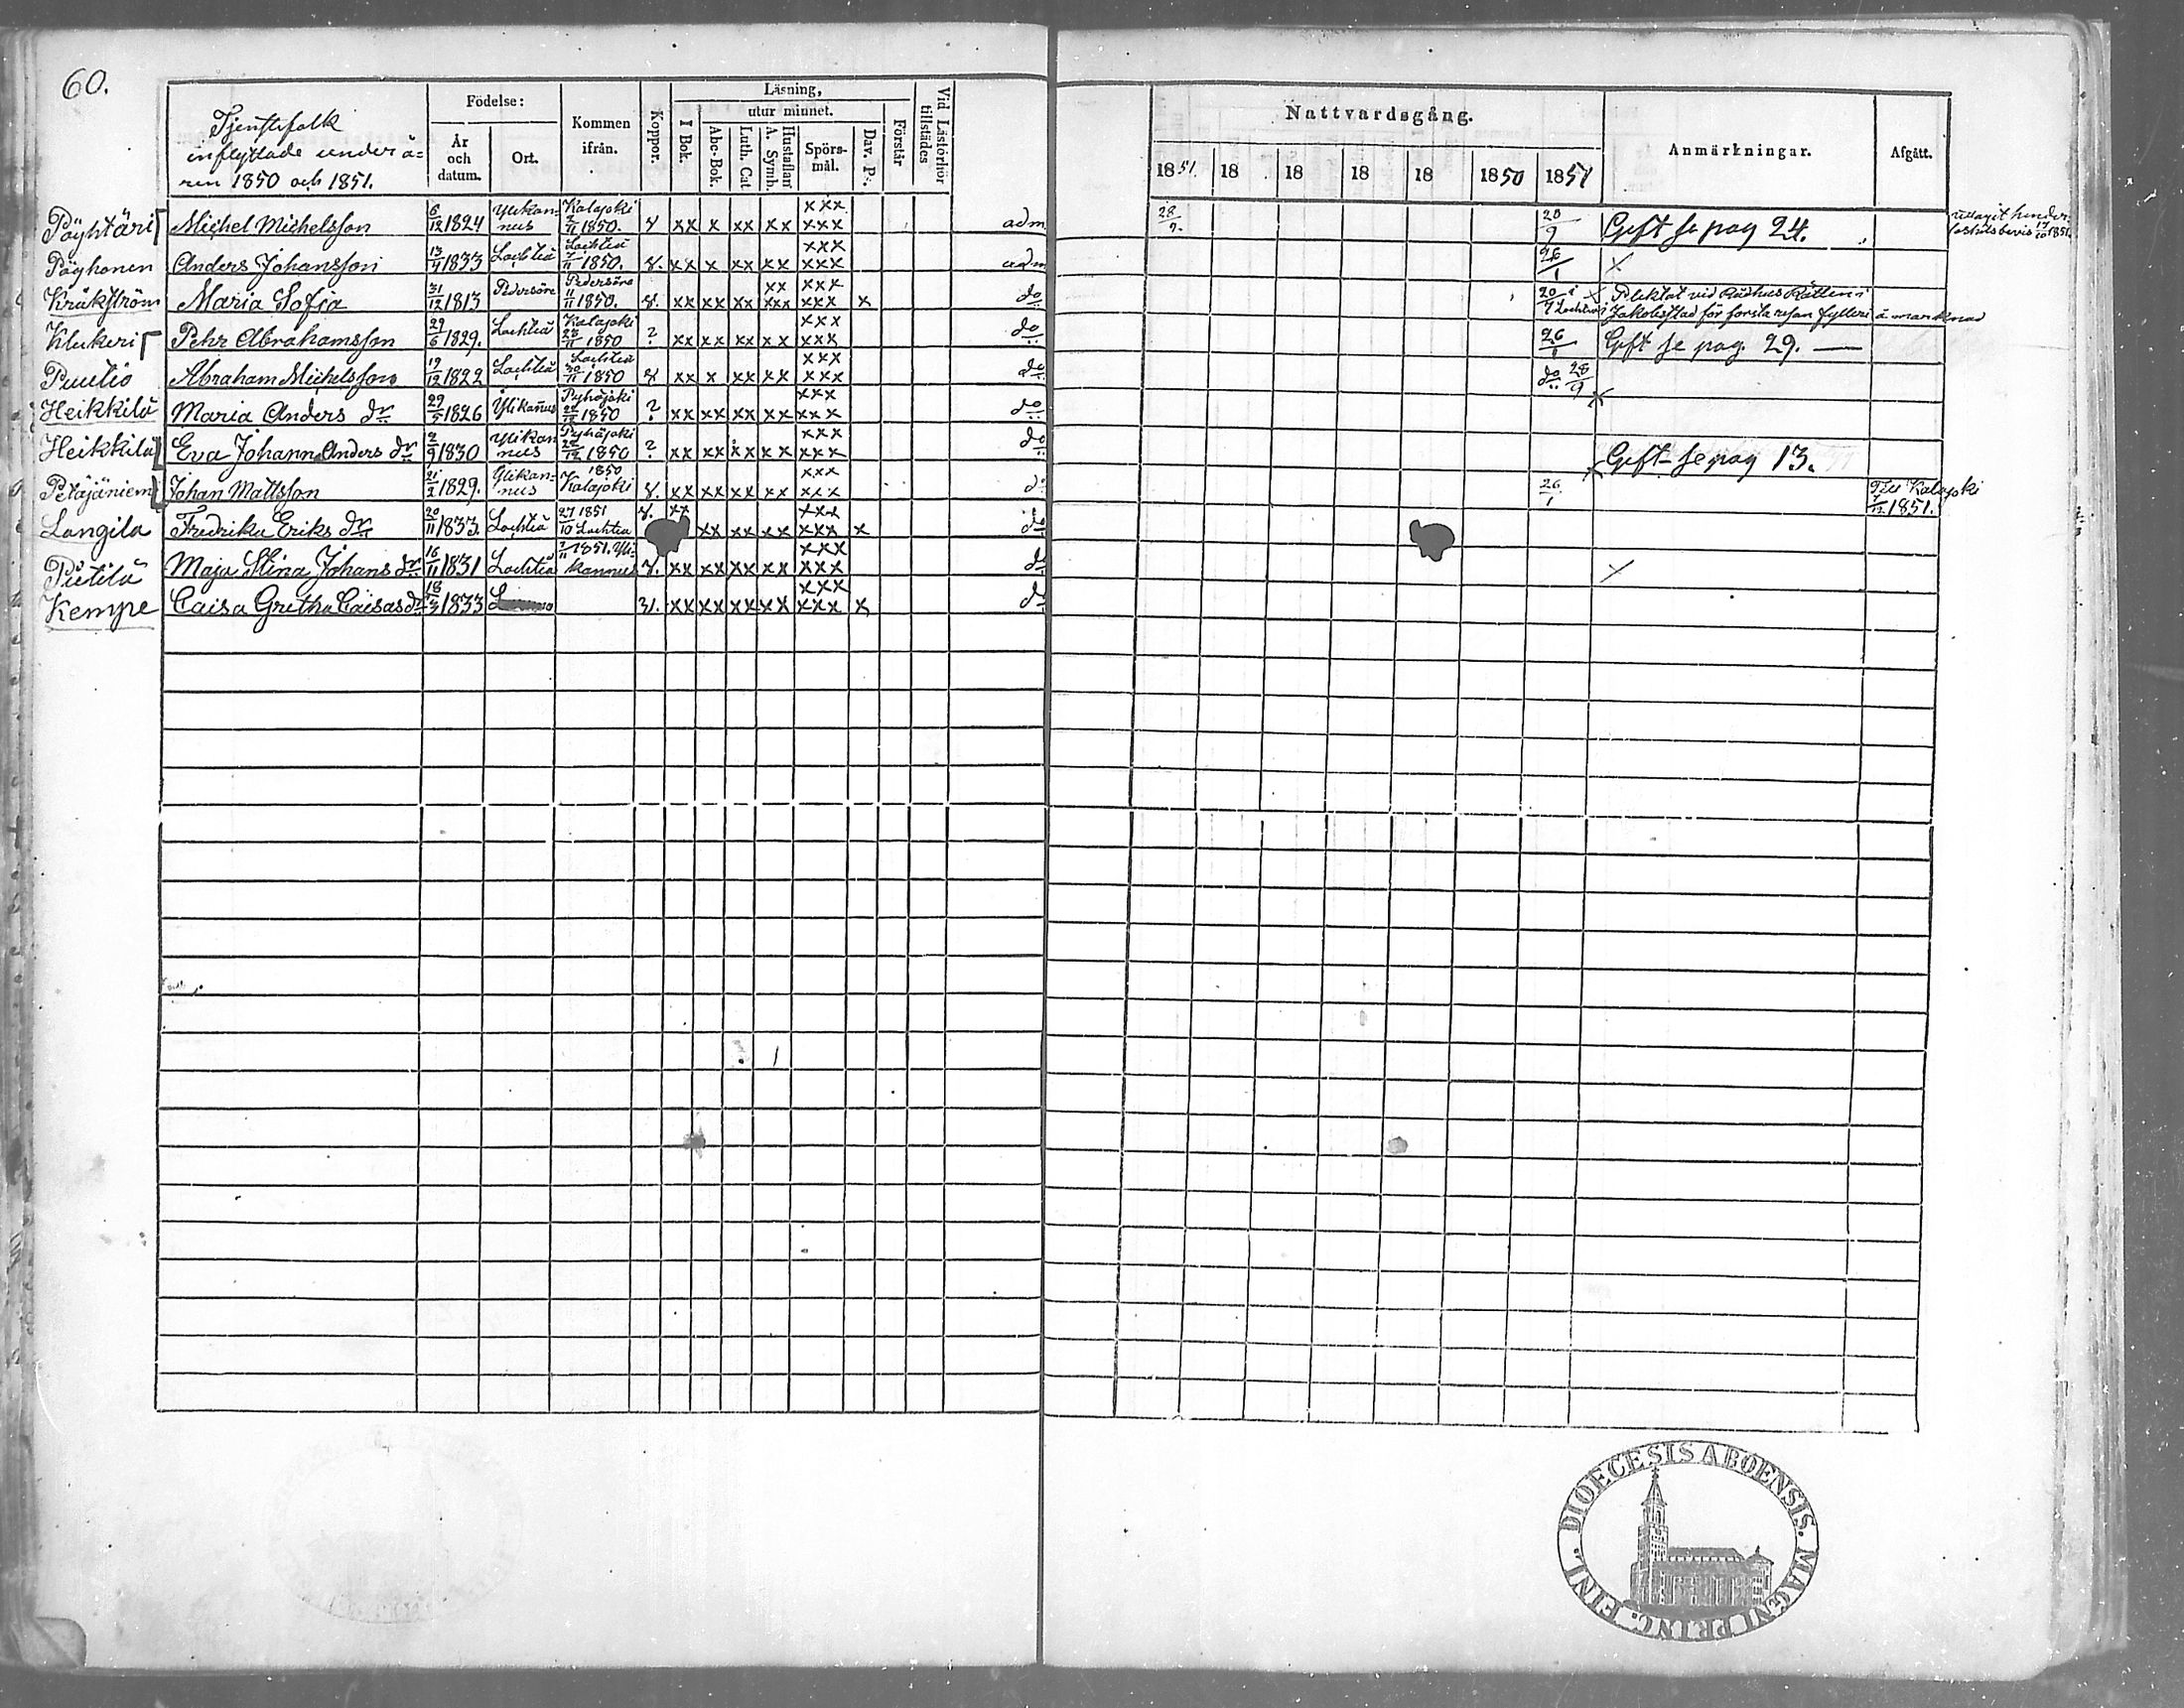 60.
Tjenstefolk
inflyttade under å=
ren 1850 och 1851.
Födelse:
År
och
datum.
Ort.
Kommen
ifrån.
Koppor.
Läsning,
utur minnet.
I Bok.
Abc-Bok.
Luth. Cat
A. Symb.
Hustaflan
Spörs-
mål.
Dav. Ps.
Förstår
Vid Läsförhör
tillstädes
Nattvardsgång.
1851 18 18 18 18 1850 1851
Anmärkningar.
Afgått.
Pöyhtäri Michel Michelsson 6/12 1824 Ylikan-
nus Kalajoki
2/11 1850. xx x xx xx xxx xxx adm 28/9. 28/9 Gift se pag 24.
Pöyhonen Anders Johansson 13/4 1833 Lochteå Lochteå
7/11 1850. xx x xx xx xxx xxx adm 26/1 x
Kråkström Maria Sofia 31/12 1813 Pedersöre Pedersöre
11/11 1850. xx xx xx xx xxx xxx xxx x do
Pliktat vid Rådhus Rätten i
Jakobsstad för första resan fylleri å marknad
Klukeri Pehr Abrahamsson 29/6 1829. Lochteå Kalajoki
28/11 1850 ? xx xx xx xx xxx xxx do 26/1 Gift se pag. 29.
Puutio Abraham Michelsson 19/12 1822 Lochteå Lochteå
30/11 1850 xx x xx xx xxx xxx do do 28/9
Heikkilä Maria Anders dr 29/5 1826 Ylikanus Pyhäjoki
1850 ? xx xx xx xx xxx xxx do x
Heikkilä Eva Johanna Anders dr 2/9 1830 Ylikan
nus Pyhäjoki
1850 ? xx xx xx xx xxx xxx do Gift se pag 13.
Petäjäniemi Johan Mattsson 21/2 1829. Ylikan-
nus 1850
Kalajoki xx xx xx xx xxx xxx do 26/1 Till Kalajoki
7/12 1851.
Langila Fredrika Eriks dr 20/11 1833. Lochteå 27/10 1851
Lochtea xx xx xx xx xxx xxx x do
Pietilä Maja Stina Johans dr 16/11 1831 Lochteå 7/11 1851. Yli-
kannus xx xx xx xx xxx xxx do x
Kempe Caisa Gretha Caisas dr 18/3 1833 xx xx xx xx xxx xxx x do
DIOECESIS ABOENSIS. MAGNI PRINC. FINL.